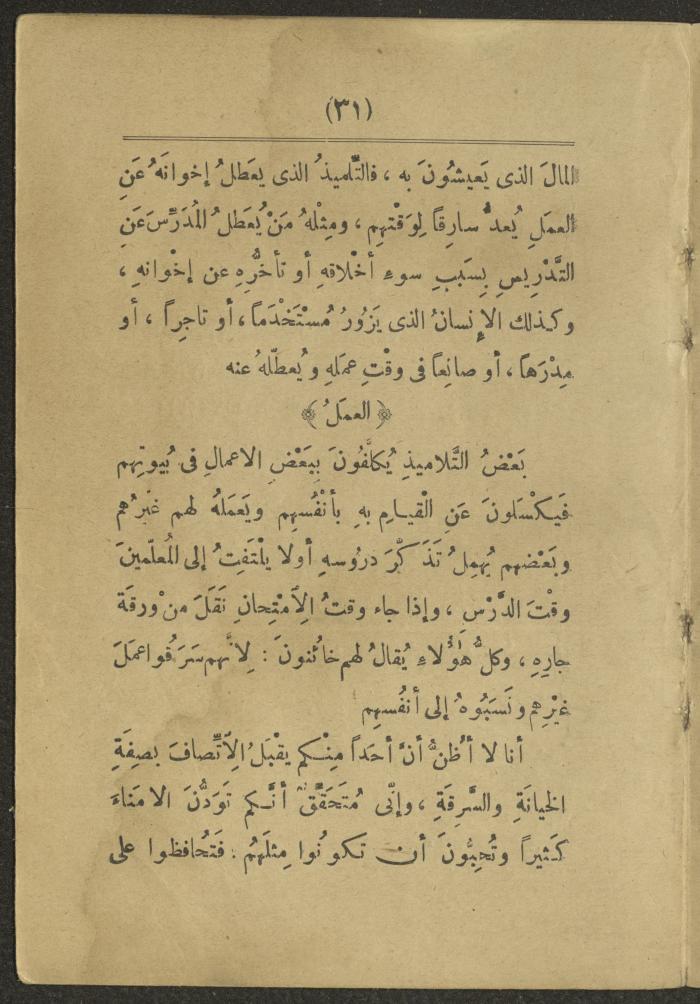 (٣١)
المالَ الذى يَعيشُونَ به ، فالتِّلميذُ الذى يعَطلُ إخوانَهُ عَنِ
العمَلِ يُعدُّ سارِقًا لِوَقتهِم ، ومِثْلهُ مَنْ يُعَطلُ المُدَرِّسَ عَنِ
التَّدْرِيسِ بِسَبَبِ سوءِ أخْلاقهِ أو تأخُّرِهِ عن إخْوانهِ ،
وكذلك الإنسانُ الذى يَزُورُ مُسْتَخْدَماً ، أو تاجِراً ، أو
مِدْرَهاً ، أو صانِعاً فى وقْتِ عمَلهِ ويُعطّلهُ عنه
﴿ العمَلُ ﴾
بَعْضُ التَّلاميذِ يُكلَّفُونَ بِبَعْضِ الاعمالِ فى بُيوتِهم
فَيَكْسَلونَ عَنِ الْقيامِ بهِ بأنْفُسِهِم ويَعَملهُ لهم غَيْرُهم
وبَعْضهم يُهمِلُ تَذَكُّرَ درُوسهِ أولا يلْتَفِتُ إلى المُعلّمينَ
وقْتَ الدَّرْسِ ، وإذا جاء وقتُ الِامْتِحانِ نَقَلَ منْ ورقَة
جارِهِ ، وكلُّ هٰؤُلاءِ يُقالُ لهم خائنونَ : لِانَّهم سَرَقُوا عمَلَ
غيْرِهم ونَسَبُوهُ إلى أنفُسهِم
أنا لا أظنُّ أنَّ أحَداً مِنْكم يقْبَلُ الِاتِّصافَ بصِفَةِ
الخيانَةِ والسَّرِقَةِ ، وإنّى مُتَحَقِّقٌ أنَّكم تَوَدُّنَ الامَناءَ
كَثيراً وتُحِبُّونَ أن تكونُوا مِثلَهُم . فَتُحافظوا على